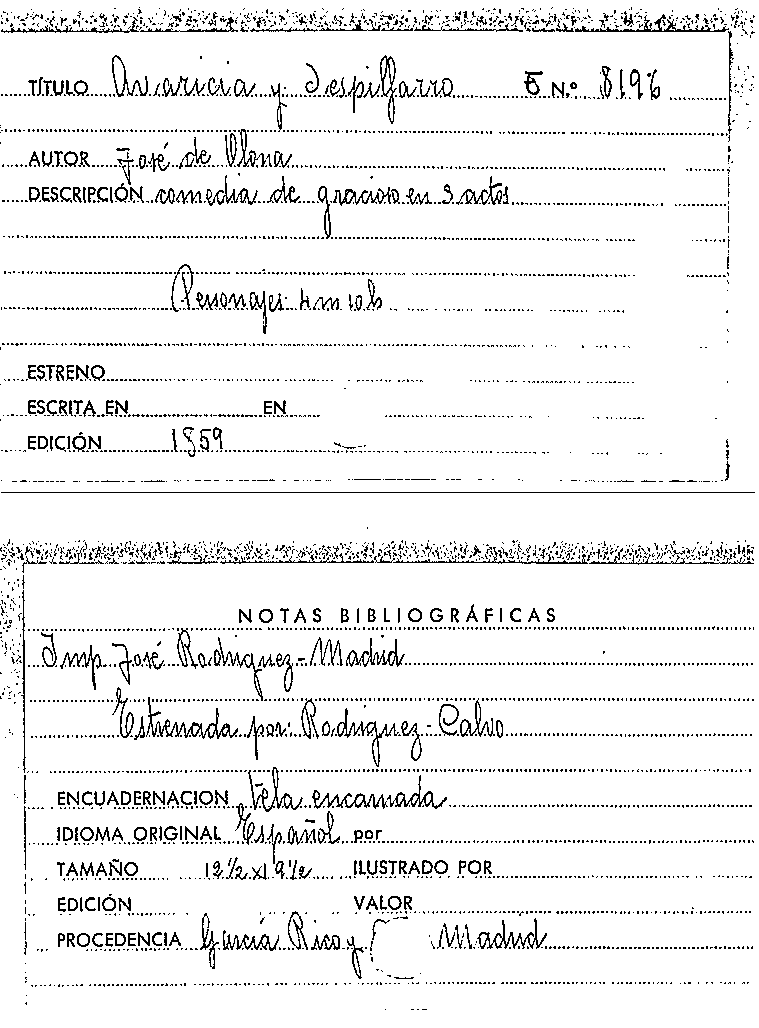 TÍTULO Avaricia y despilfarro E N.º 8196
AUTOR José de Olona
DESCRIPCIÓN comedia de gracioso en 3 actos
Personajes: 4 m 10 h
ESTRENO
ESCRITA EN EN
EDICIÓN 1859
NOTAS BIBLIOGRÁFICAS
Imp José Rodriguez - Madrid
Estrenada por: Rodriguez - Calvo
ENCUADERNACION tela encarnada
IDIOMA ORIGINAL Español por
TAMAÑO 12 1/2 x 19 1/2 ILUSTRADO POR
EDICIÓN VALOR
PROCEDENCIA García Rico y C Madrid